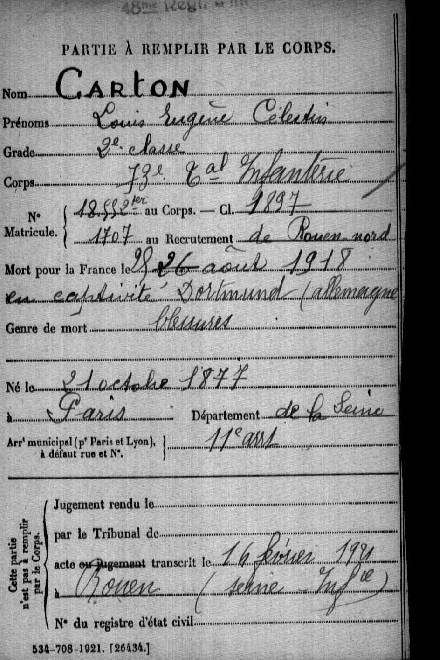 48me Regt.
PARTIE À REMPLIR PAR LE CORPS.
Nom CARTON
Prénoms Louis Eugène Célestin
Grade 2e classe
Corps 73e tal Infanterie
N° Matricule. 18552ter au Corps. — Cl. 1897
1707 au Recrutement de Rouen-nord
Mort pour la France le 25 26 août 1918
en captivité Dortmund (allemagne
Genre de mort blessures
Né le 21 octobre 1877
à Paris Département de la Seine
Arrt municipal (pr Paris et Lyon), à défaut rue et N°. 11e arrt
Cette partie n'est pas à remplir par le Corps.
Jugement rendu le
par le Tribunal de
acte ou jugement transcrit le 16 février 1921
à Rouen (Seine Infre)
N° du registre d'état civil
534-708-1921. [26434.]